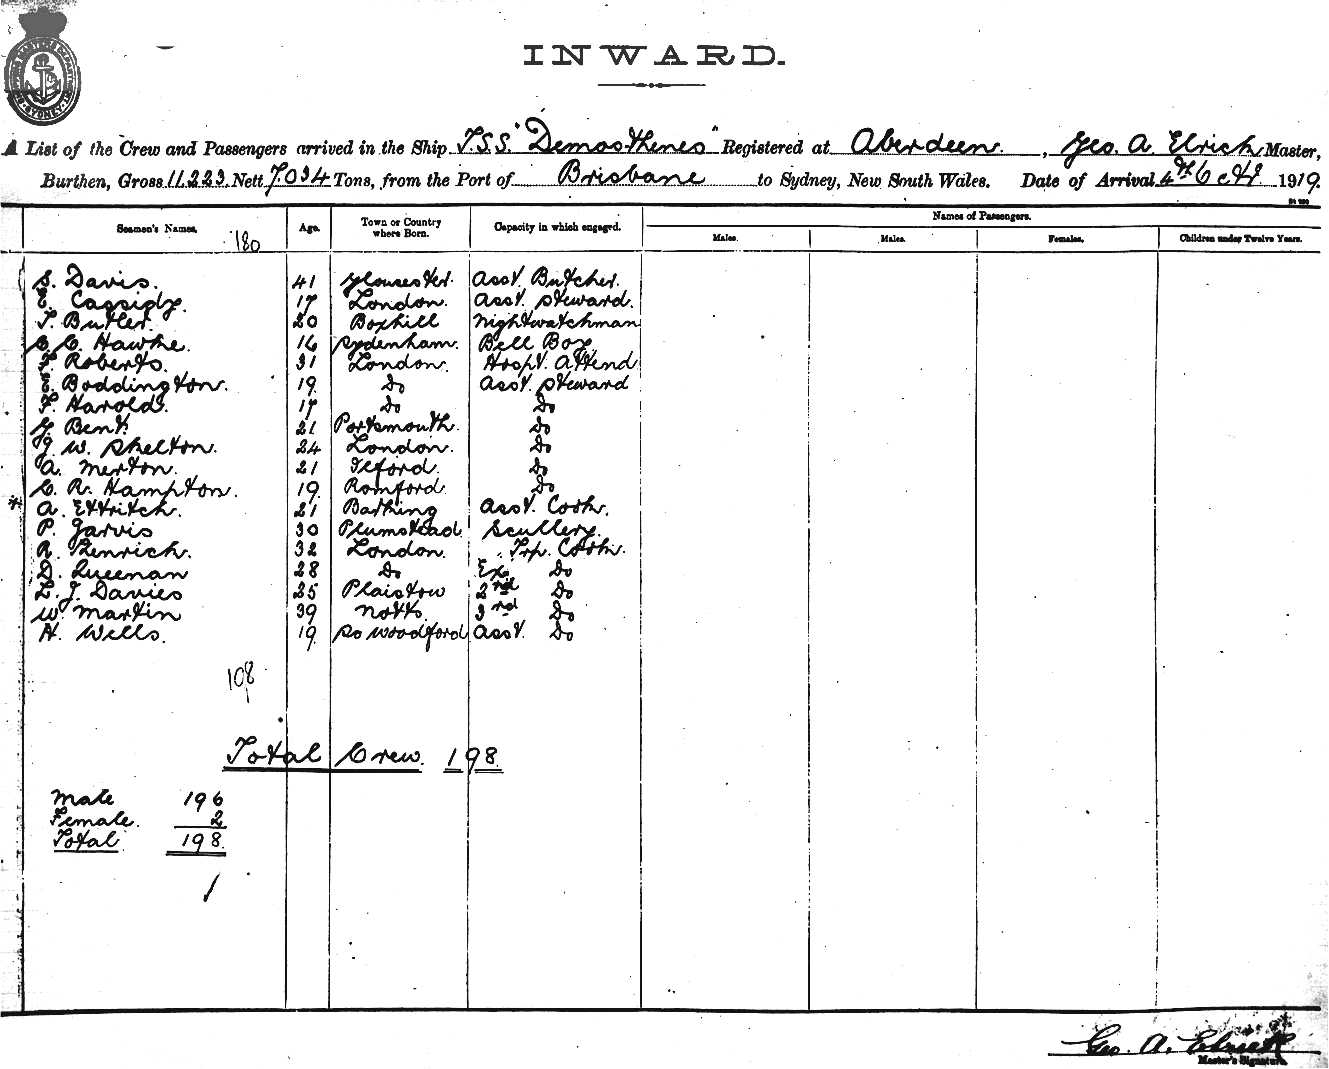 INWARD.
A List of the Crew and Passengers arrived in the Ship T.S.S. "Demosthenes" Registered at Aberdeen. , Geo. A. Elrick Master,
Burthen, Gross 11.223. Nett 7.034 Tons, from the Port of Brisbane to Sydney, New South Wales. Date of Arrival 4th Oct 1919.
Seamen's Names. Age. Town or Country where Born. Capacity in which engaged. Names of Passengers.
180 Males. Males. Females. Children under Twelve Years.
S. Davis. 41 Gloucester. Asst. Butcher.
E. Cassidy. 17 London. Asst. Steward.
T. Butler. 20 Boxhill Nightwatchman
C. C. Hawke. 16 Sydenham. Bell Boy
F. Roberts. 31 London. Hospt. Attend
E. Boddington. 19 Do Asst. Steward
F. Harold. 17 Do Do
G. Bent. 21 Portsmouth. Do
J. W. Skelton. 24 London. Do
A. Merton. 21 Ilford. Do
C. R. Hampton. 19 Romford. Do
* A. Ettritch. 21 Barking Asst. Cook.
P. Jarvis 30 Plumstead. Scullery.
R. Phenrich. 32 London. Trp. Cook.
D. Queenan 28 Do Ex. Do
L. J. Davies 25 Plaistow 2nd Do
W. Martin 39 Notts. 3rd Do
H. Wells. 19 So Woodford Asst. Do
108
Total Crew. 198
Male 196
Female. 2
Total 198.
Geo. A. Elrick
Master's Signature.